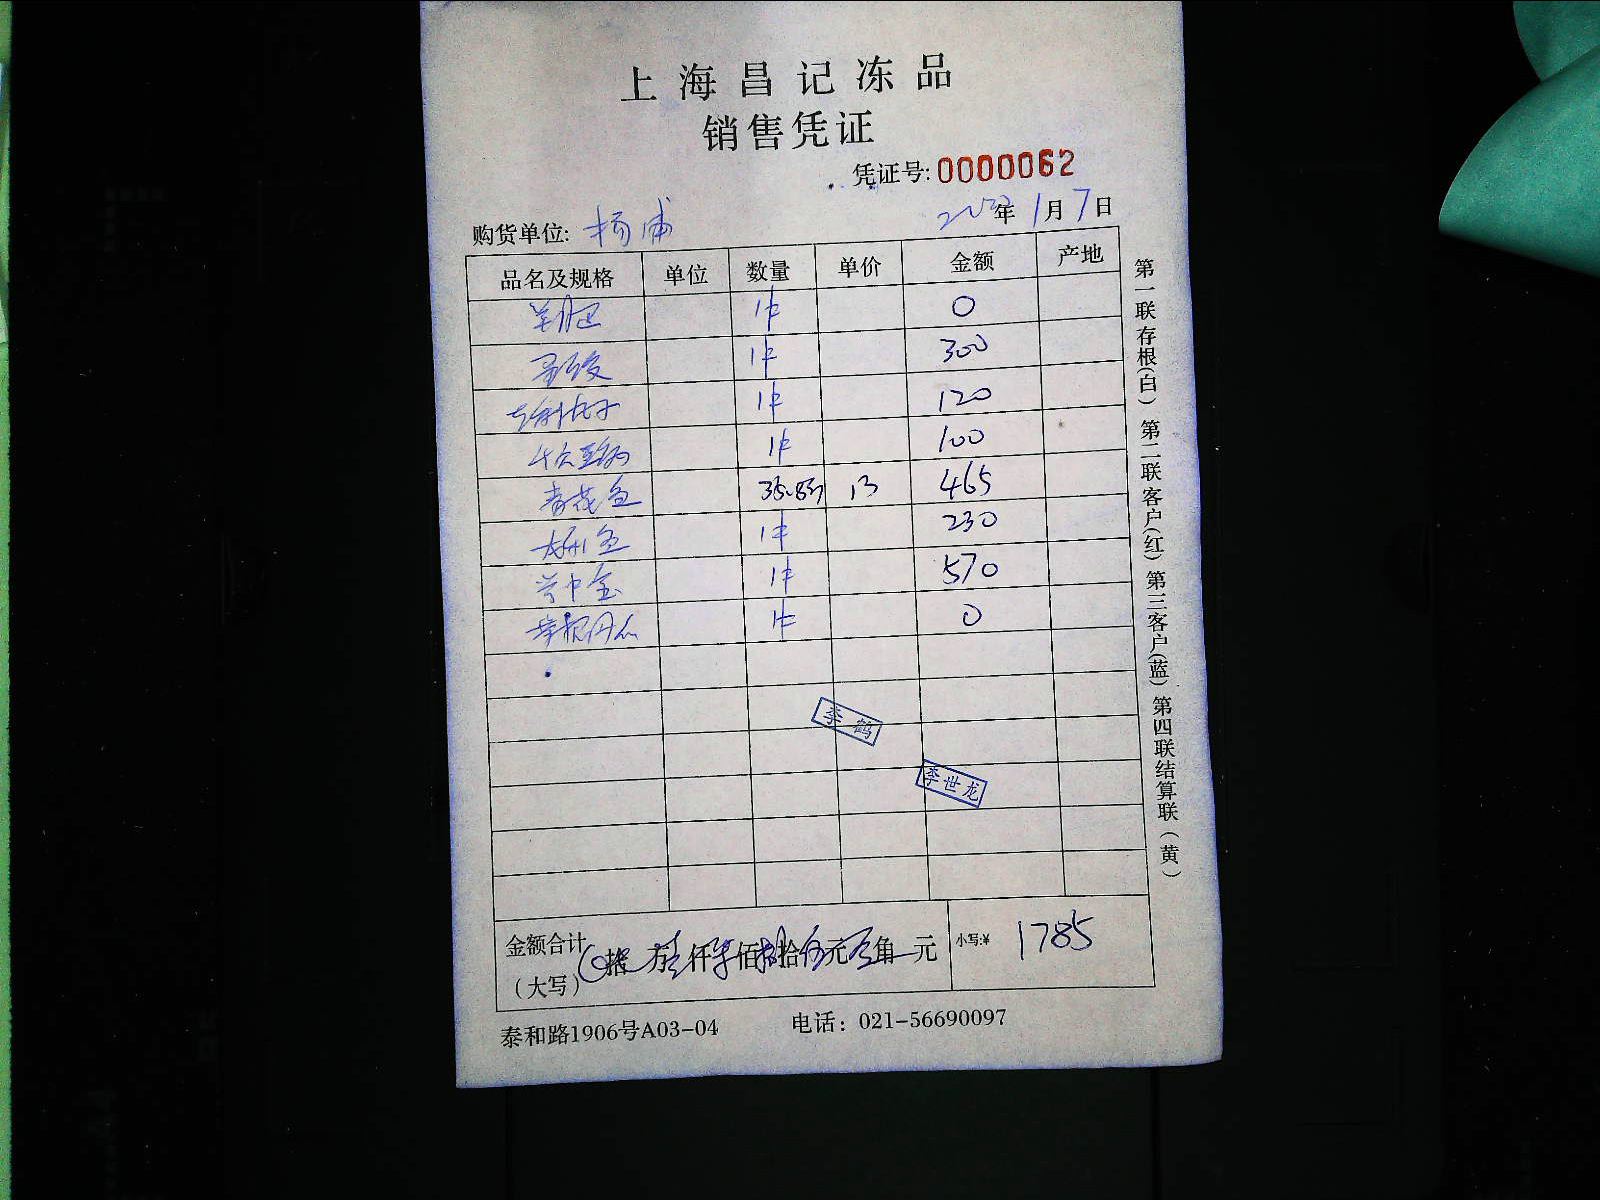 上海昌记冻品
销售凭证
凭证号:0000062
购货单位: 杨浦 2022年1月7日
品名及规格 单位 数量 单价 金额 产地
1件 0
1件 300
1件 120
1件 100
青花鱼 35.8斤 13 465
鱼 1件 230
1件 570
1件 0
李鹤
李世龙
金额合计 拾 万壹仟柒佰捌拾伍元零角 元 小写:¥ 1785
（大写）
泰和路1906号A03-04 电话：021-56690097
第一联存根(白) 第二联客户(红) 第三客户(蓝) 第四联结算联（黄）